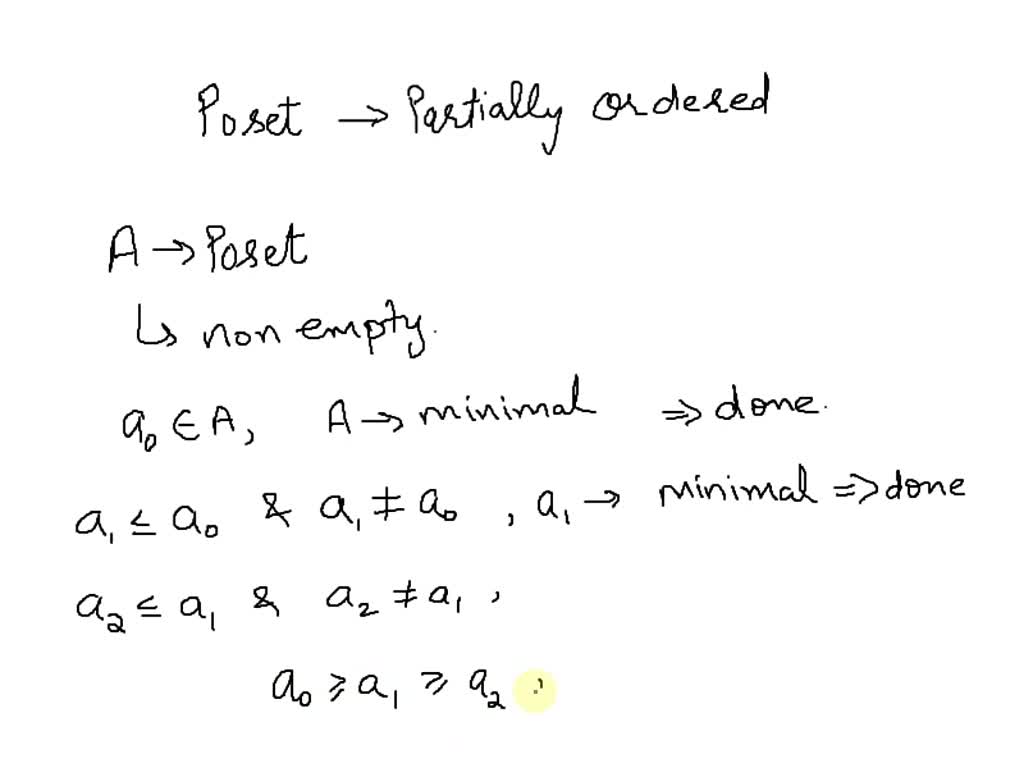 Poset → Partially ordered
A → Poset
↳ non empty.
a₀ ∈ A, A → minimal ⇒ done.
a₁ ≤ a₀ & a₁ ≠ a₀, a₁ → minimal ⇒ done
a₂ ≤ a₁ & a₂ ≠ a₁,
a₀ ≥ a₁ ≥ a₂